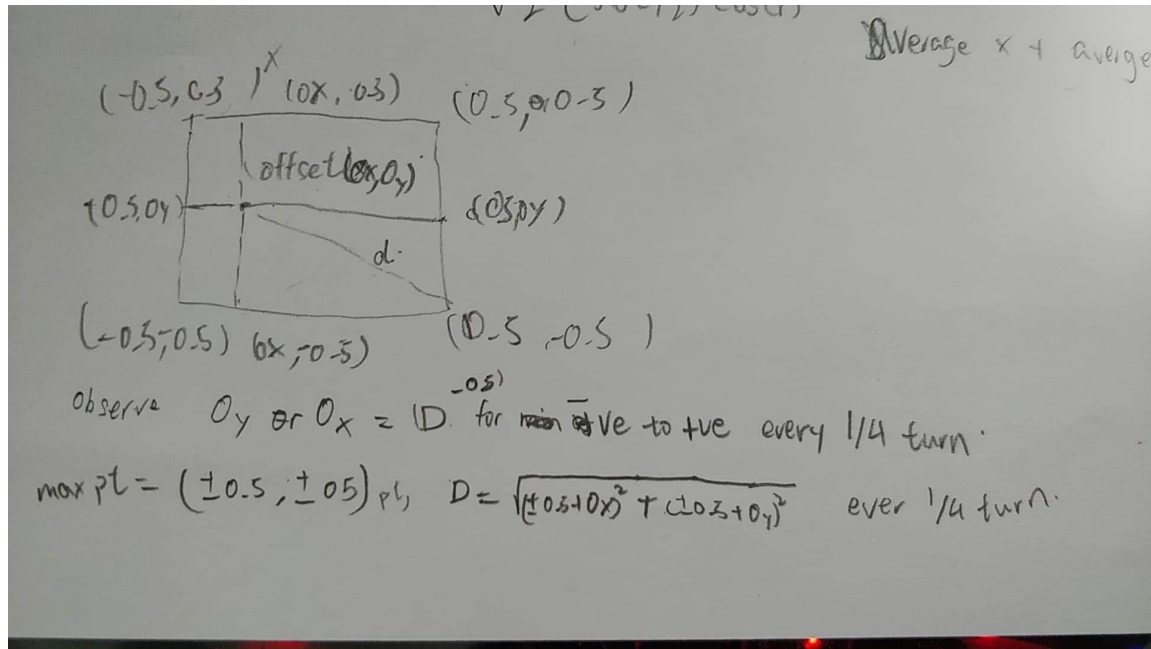 Average x + averge
(-0.5, 0.5) x (0x, 0.5) (0.5, 0.5)
offset (0x, 0y)
(0.5, 0y) (0.5, 0y)
d.
(-0.5, -0.5) (0x, -0.5) (0.5, -0.5)
-0.5)
observe 0y or 0x = D for -ve to +ve every 1/4 turn.
max pt = (±0.5, ±05) pt, D = √(±0.5+0x)² + (±0.5+0y)² ever 1/4 turn.